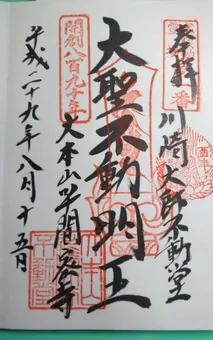 奉拝
川崎大師不動堂
大聖不動明王
開創八百九十年
大本山平間寺
平成二十九年八月十五日